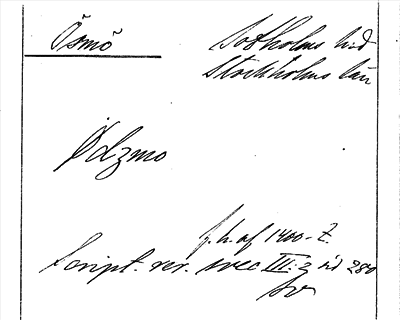 Ösmö
Sotholms hd
Stockholms län
Ødzmo
f. h. af 1400-t.
Script. rer. svec III: 2 sid 280